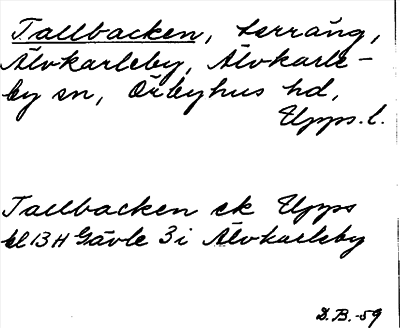 Tallbacken, terräng,
Älvkarleby, Älvkarle-
by sn, Örbyhus hd,
Upps. l.
Tallbacken ek Upps
bl 13 H Gävle 3 i Älvkarleby
D.B. -59